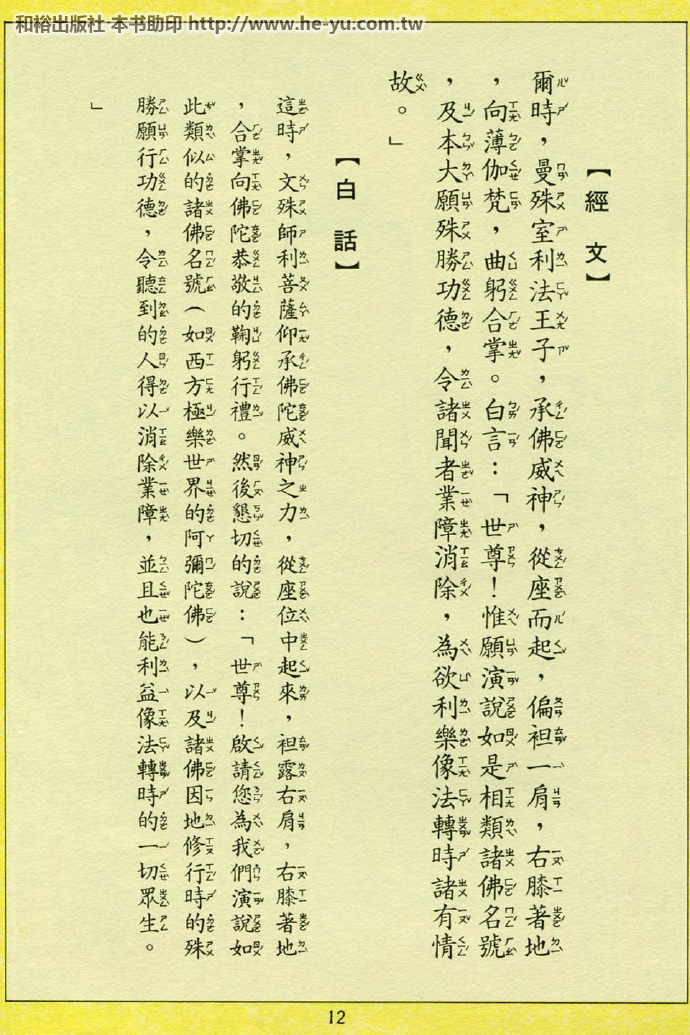 和裕出版社 本书助印 http://www.he-yu.com.tw
【經文】
爾時，曼殊室利法王子，承佛威神，從座而起，偏袒一肩，右膝著地
，向薄伽梵，曲躬合掌。白言：「世尊！惟願演說如是相類諸佛名號
，及本大願殊勝功德，令諸聞者業障消除，為欲利樂像法轉時諸有情
故。」
【白話】
這時，文殊師利菩薩仰承佛陀威神之力，從座位中起來，袒露右肩，右膝著地
，合掌向佛陀恭敬的鞠躬行禮。然後懇切的說：「世尊！啟請您為我們演說如
此類似的諸佛名號（如西方極樂世界的阿彌陀佛），以及諸佛因地修行時的殊
勝願行功德，令聽到的人得以消除業障，並且也能利益像法轉時的一切眾生。
」
12